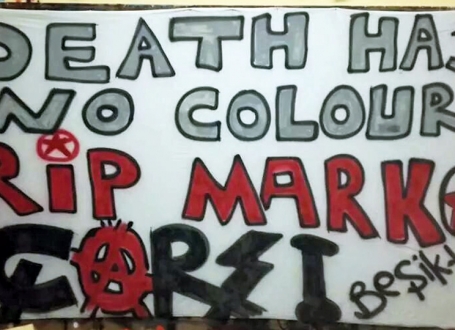 DEATH HAS
NO COLOUR
RiP MARKO
ÇARŞI
BeŞik